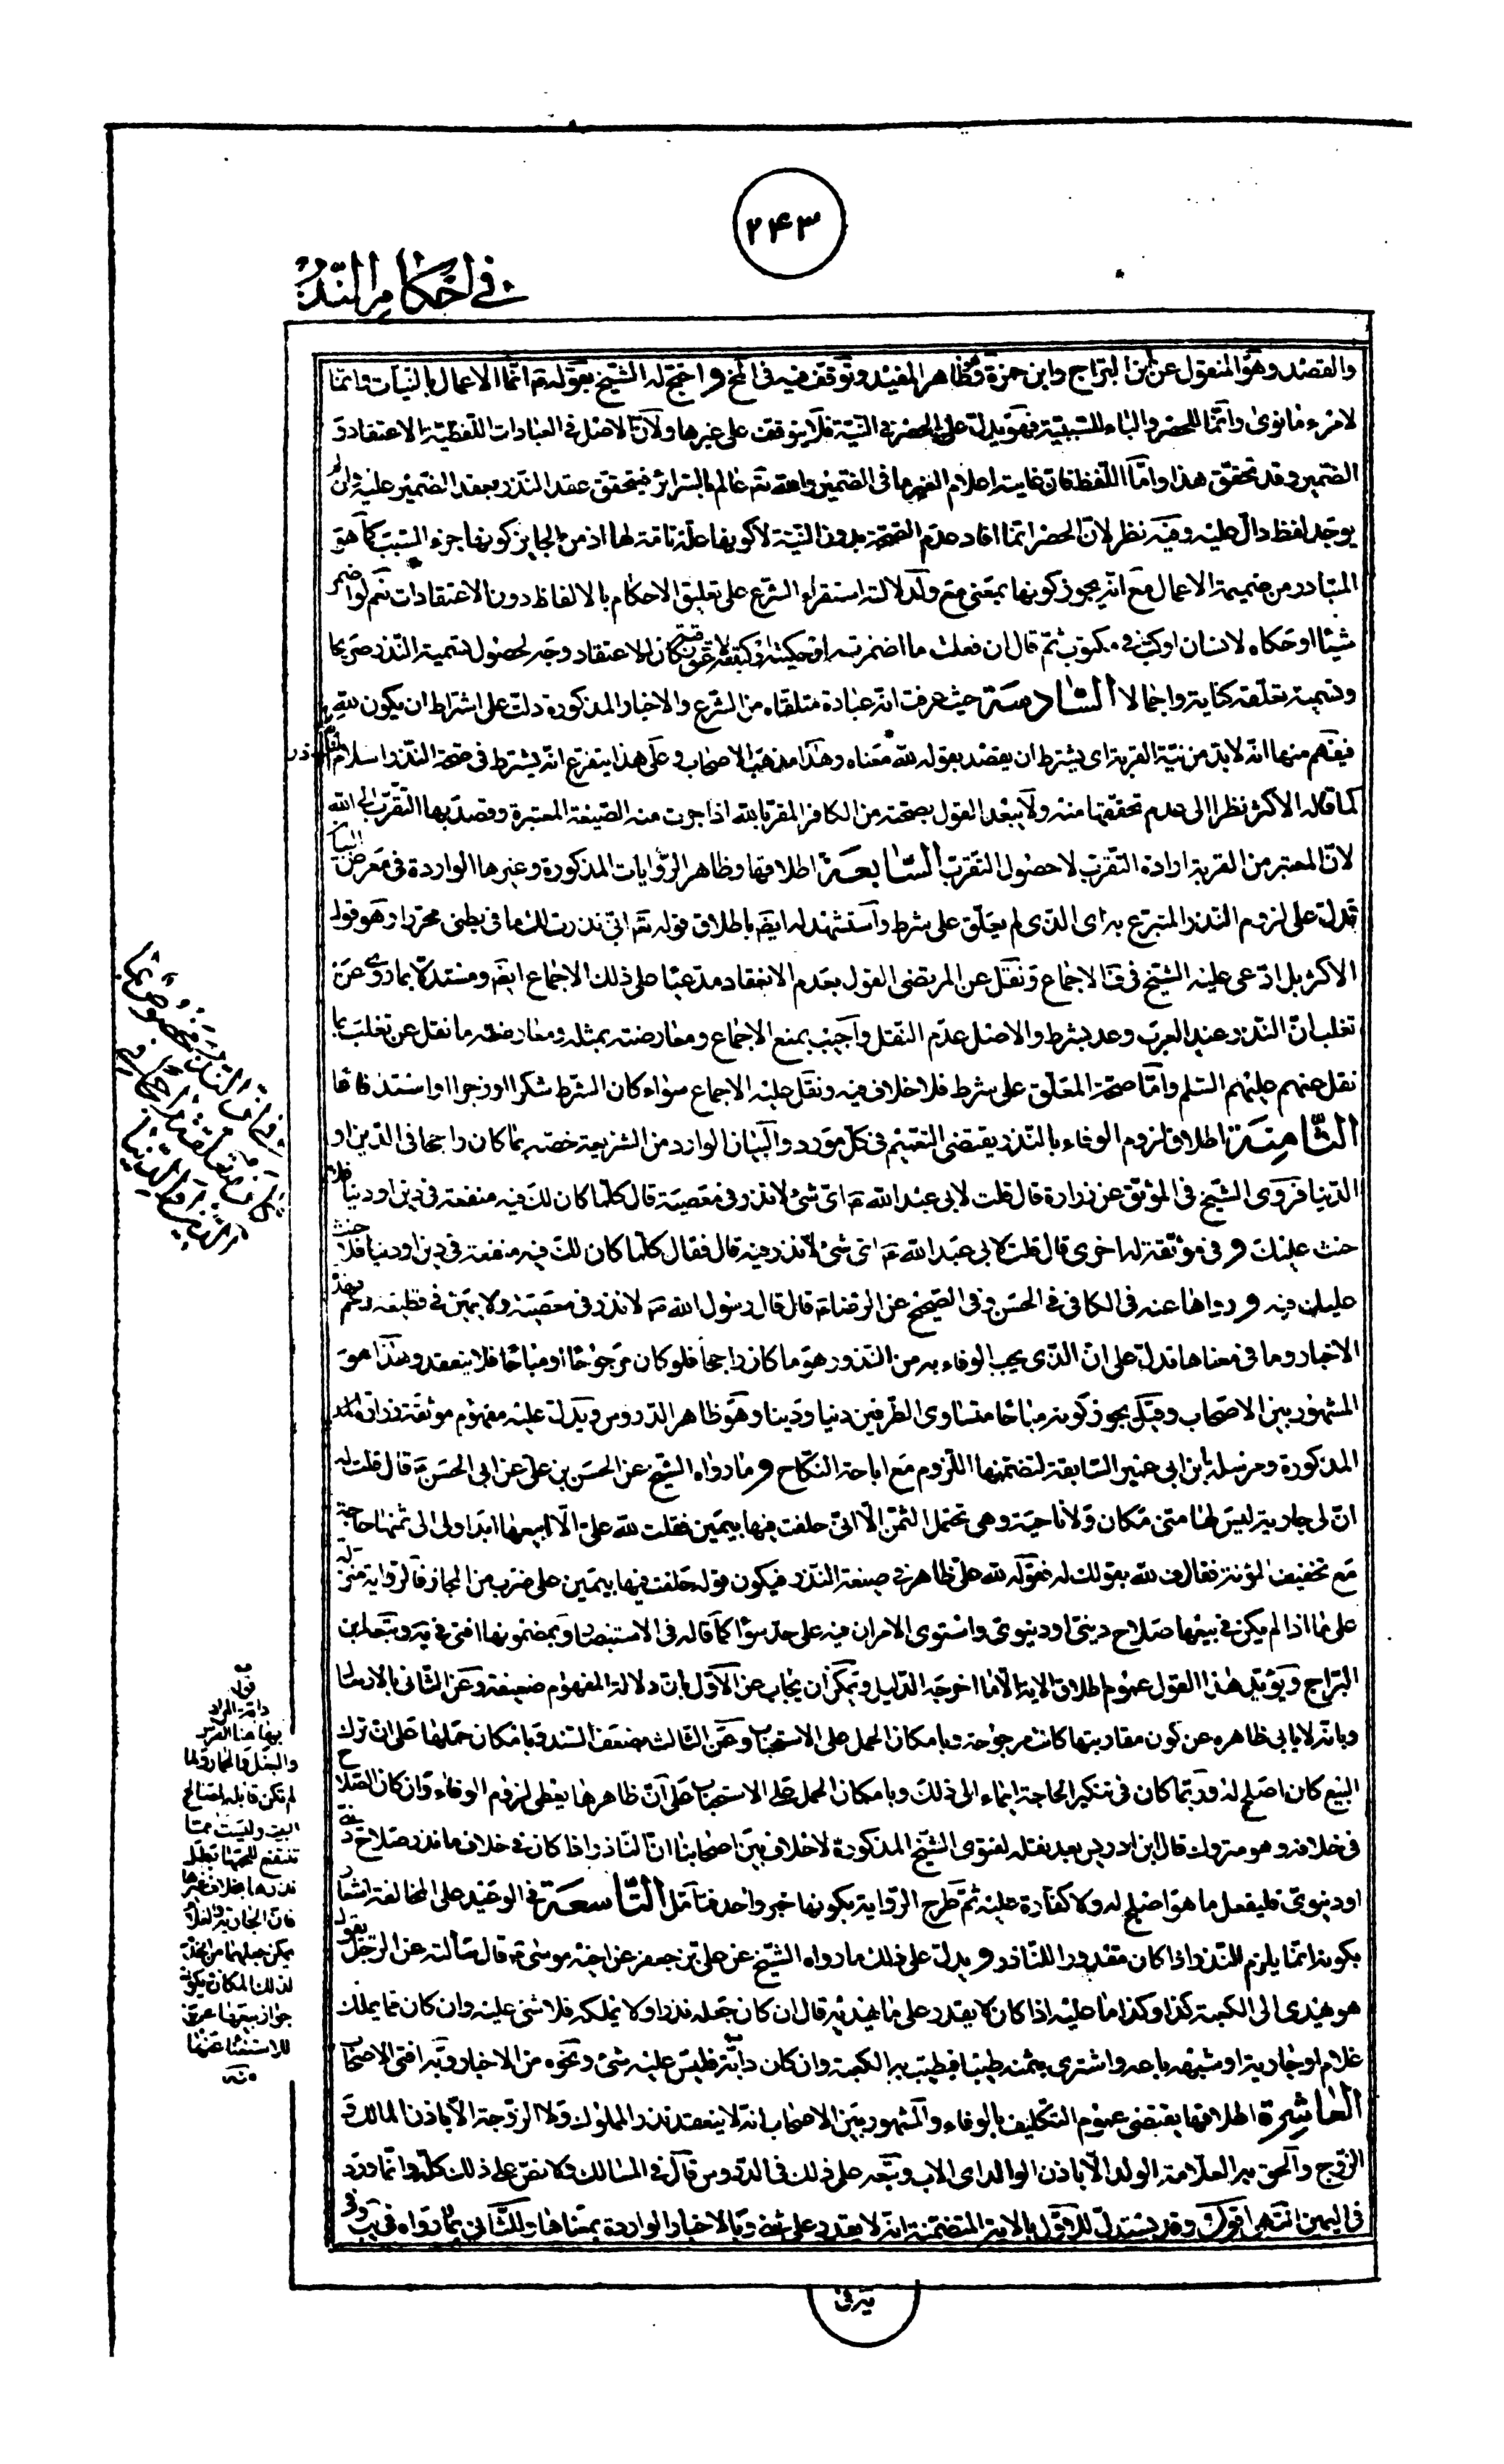 ٢٤٣
في احكام النذر
والقصد وهو المنقول عن ابن البراج وابن حمزة وظاهر المفيد وتوقف فيه في المخ واحتج له الشيخ بقوله ع انما الاعمال بالنيات وانما
لامرء ما نوى وانما للحصر والباء للسببية فهو يدل على الحصر في النية فلا يتوقف على غيرها ولان الاصل في العبادات اللفظية الاعتقاد و
الضمير وقد تحقق هذا واما اللفظ فان غايته اعلام الغير بما في الضمير والله تع عالم بالسرائر فيتحقق عقد النذر بعقد الضمير عليه وان لم
يوجد لفظ دال عليه وفيه نظر لان الحصر انما افاد عدم الصحة بدون النية لا كونها علة تامة لها اذ من الجايز كونها جزء السبب كما هو
المتبادر من ضميمة الاعمال مع انه يجوز كونها بمعنى مع ولدلالة استقراء الشرع على تعليق الاحكام بالالفاظ دون الاعتقادات نعم لو اضمر
شيئا او حكاه لانسان او كتب في مكتوب ثم قال ان فعلت ما اضمرته او حكيته او كتبته كان الاعتقاد وجه لحصول تسمية النذر صريحا
وتسمية تعلقه كناية واجمالا السادسة حيث عرفت انه عبادة متلقاه من الشرع والاخبار المذكورة دلت على اشتراط ان يكون لله
فيفهم منها انه لا بد من نية القربة اي يشترط ان يقصد بقوله لله معناه وهذا مذهب الاصحاب وعلى هذا يتفرع انه يشترط في صحة النذر اسلام الناذر
كما قاله الاكثر نظرا الى عدم تحققها منه ولا يبعد القول بصحته من الكافر المقر بالله اذا جرت منه الصيغة المعتبرة وقصد بها التقرب الى الله
لان المعتبر من القربة ارادة التقرب لا حصول التقرب السابعة اطلاقها وظاهر الروايات المذكورة وغيرها الواردة في معرض البيان
تدل على لزوم النذر المتبرع به اي الذي لم يعلق على شرط واستشهد له ايضم باطلاق قوله تع اني نذرت لك ما في بطني محررا وهو قول
الاكثر بل ادعى عليه الشيخ في ف الاجماع ونقل عن المرتضى القول بعدم الانعقاد مدعيا على ذلك الاجماع ايضم ومستدلا بما روي عن
تغلب ان النذر عند العرب وعد بشرط والاصل عدم النقل واجيب بمنع الاجماع ومعارضته بمثله ومعارضة ما نقل عن تغلب بما
نقل عنهم عليهم السلم واما صحة المعلق على شرط فلا خلاف فيه ونقل عليه الاجماع سواء كان الشرط شكرا او زجرا او استدفاعا
الثامنة اطلاق لزوم الوفاء بالنذر يقتضي التعميم في كل مورد والبيان الوارد من الشريعة خصه بما كان راجحا في الدين او
الدنيا فروى الشيخ في الموثق عن زرارة قال قلت لابي عبد الله ع اي شيء لا نذر في معصية قال كلما كان لك فيه منفعة في دين او دنيا فلا
حنث عليك و في موثقة له اخرى قال قلت لابي عبد الله ع اي شيء لا نذر فيه قال فقال كلما كان لك فيه منفعة في دين او دنيا فلا حنث
عليك فيه و رواها عنه في الكافي في الحسن وفي الصحيح عن الرضا ع قال قال رسول الله ص لا نذر في معصية ولا يمين في قطيعة رحم فهذه
الاخبار وما في معناها تدل على ان الذي يجب الوفاء به من النذور هو ما كان راجحا فلو كان مرجوحا او مباحا فلا ينعقد وهذا هو
المشهور بين الاصحاب وقيل يجوز كونه مباحا متساوي الطرفين دنيا ودينا وهو ظاهر الدروس ويدل عليه مفهوم موثقة زرارة
المذكورة ومرسلة ابن ابي عمير السابقة لتضمنها اللزوم مع اباحة النكاح و ما رواه الشيخ عن الحسن بن علي عن ابي الحسن ع قال قلت له
ان لي جارية ليس لها مني مكان ولا ناحية وهي تحتمل الثمن الا اني حلفت فيها بيمين فقلت لله علي الا ابيعها ابدا ولي الى ثمنها حاجة
مع تخفيف المؤنة فقال ف لله بقولك له فقوله لله علي ظاهر في صيغة النذر فيكون قوله حلفت فيها بيمين على ضرب من المجاز فالرواية منزلة
على ما اذا لم يكن في بيعها صلاح ديني او دنيوي واستوى الامران فيه على حد سواء كما قاله في الاستبصار وبمضمونها افتى في يه وتبعه ابن
البراج ويؤيد هذا القول عموم اطلاق الاية الا ما اخرجه الدليل ويمكن ان يجاب عن الاول بان دلالة المفهوم ضعيفة وعن الثاني بالارسال
وبانه لا يابى ظاهره عن كون مقاربتها كانت مرجوحة وبامكان الحمل على الاستحباب وعن الثالث بضعف السند وبامكان حملها على ان ترك
البيع كان اصلح له وربما كان في تنكير الحاجة ايماء الى ذلك وبامكان الحمل على الاستحباب على ان ظاهرها يعطي لزوم الوفاء وان كان الصلاح
في خلافه وهو متروك قال ابن ادريس بعد نقله لفتوى الشيخ المذكورة لا خلاف بين اصحابنا ان الناذر اذا كان في خلاف ما نذر صلاح ديني
او دنيوي فليفعل ما هو اصلح له ولا كفارة عليه ثم طرح الرواية بكونها خبر واحد فتامل التاسعة في الوعيد على المخالفة اشعار
بكونه انما يلزم النذر اذا كان مقدورا للناذر و يدل على ذلك ما رواه الشيخ عن علي بن جعفر عن اخيه موسى ع قال سألته عن الرجل يقول
هو يهدي الى الكعبة كذا وكذا ما عليه اذا كان لا يقدر على ما يهديه قال ان كان جعله نذرا ولا يملكه فلا شيء عليه وان كان مما يملك
غلام او جارية او شبهه باعه واشترى بثمنه طيبا فيطيب به الكعبة وان كان دابة فليس عليه شيء ونحوه من الاخبار وبه افتى الاصحاب
العاشرة اطلاقها يقتضي عموم التكليف بالوفاء والمشهور بين الاصحاب انه لا ينعقد نذر المملوك ولا الزوجة الا باذن المالك و
الزوج والحق به العلامة الولد الا باذن الوالد اي الاب وتبعه على ذلك في الدروس قال في المسالك ولا نص على ذلك كله وانما ورد
في اليمين انتهى اقول وقد يستدل للاول بالاية المتضمنة انه لا يقدر على شيء وبالاخبار الواردة بمعناها وللثاني بما رواه في يب وفي
قوله
دابة المراد
بها هنا الفرس
والبغل والحمار
لم تكن قابلة لمصالح
البيت وليست مما
تنتفع
نذرها بخلاف غيرها
فان الجارية والغلام
يمكن جعلهما من
لذلك المكان
جواز بيعها
للاستغناء عنها
منه
يه في